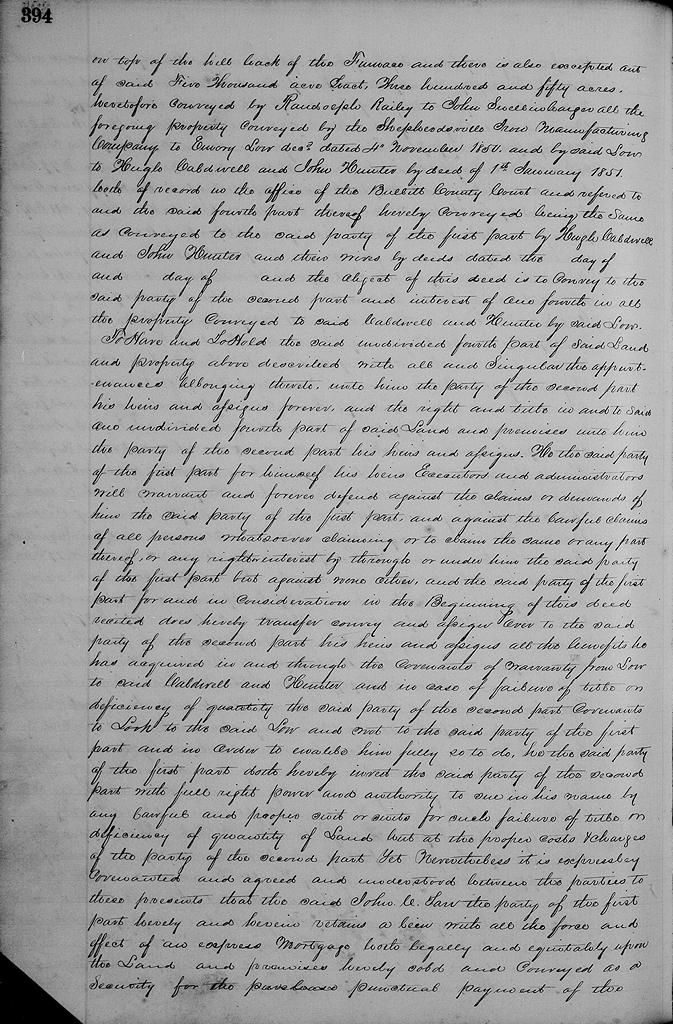 394
on top of the hill back of the Furnace and there is also excepted out
of said Five Thousand acre Tract, Three hundred and fifty acres.
heretofore Conveyed by Randolph Railey to John Swellinbarger all the
foregoing property Conveyed by the Shepherdsville Iron Manufacturing
Company to Emory Low decd dated 4th November 1850. and by said Low
to Hugh Caldwell and John Hunter by deed of 1st January 1851.
both of record in the office of the Bullitt County Court and refered to
and the said fourth part thereof hereby Conveyed being the Same
as Conveyed to the said party of the first part by Hugh Caldwell
and John Hunter and their wives by deeds dated the day of
and day of and the object of this deed is to Convey to the
said party of the second part and interest of one fourth in all
the property Conveyed to said Caldwell and Hunter by said Low.
To Have and To Hold the said undivided fourth part of Said Land
and property above described with all and Singular the appurt-
enances belonging thereto. unto him the party of the second part
his heirs and assigns forever, and the right and title in and to said
one undivided fourth part of said Land and premises unto him
the party of the second part his heirs and assigns. He the said party
of the first part for himself his heirs Executors and administrators
will warrant and forever defend against the claims or demands of
him the said party of the first part, and against the lawful claims
of all persons whatsoever claiming or to claim the same or any part
thereof, or any right or interest by through or under him the said party
of the first part but against none other, and the said party of the first
part for and in Consideration in the Beginning of this deed
recited does hereby transfer convey and assign over to the said
party of the second part his heirs and assigns all the benefits he
has acquired in and through the Covenants of warranty from Low
to said Caldwell and Hunter and in case of failure of title or
deficiency of quantity the said party of the second part Covenants
to Look to the said Low and not to the said party of the first
part and in Order to enable him fully so to do, he the said party
of the first part doth hereby invest the said party of the second
part with full right power and authority to sue in his name by
any lawful and proper suit or suits for such failure of title or
deficiency of quantity of Land but at the proper costs & charges
of the party of the second part Yet Nevertheless it is expressly
Covenanted and agreed and understood between the parties to
these presents that the said John C. the party of the first
part hereby and herein retains a lien with all the force and
effect of an express Mortgage both legally and equitably upon
the Land and premises hereby sold and Conveyed as a
Security for the purchase punctual payment of the